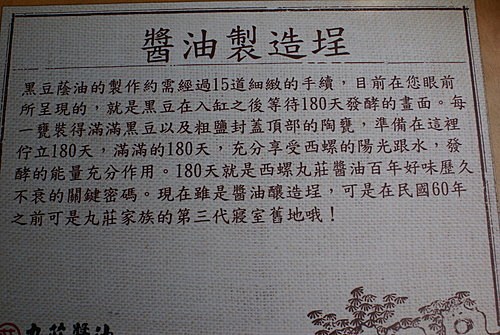 醬油製造埕
黑豆蔭油的製作約需經過15道細緻的手續，目前在您眼前
所呈現的，就是黑豆在入缸之後等待180天發酵的畫面。每
一甕裝得滿滿黑豆以及粗鹽封蓋頂部的陶甕，準備在這裡
佇立180天，滿滿的180天，充分享受西螺的陽光跟水，發
酵的能量充分作用。180天就是西螺丸莊醬油百年好味歷久
不衰的關鍵密碼。現在雖是醬油釀造埕，可是在民國60年
之前可是丸莊家族的第三代寢室舊地哦！
丸莊醬油